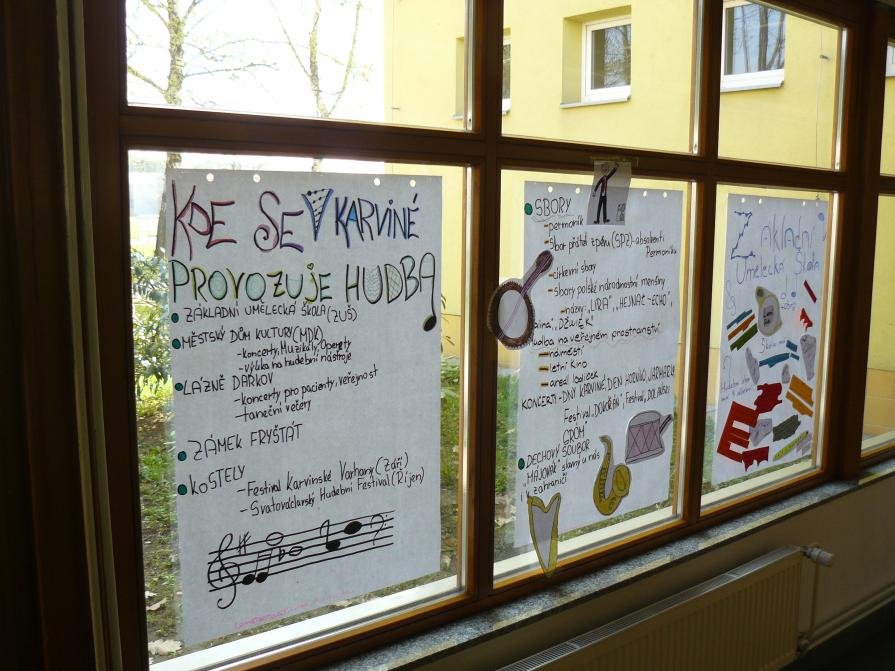 KDE SE V KARVINÉ
PROVOZUJE HUDBA
ZÁKLADNÍ UMĚLECKÁ ŠKOLA (ZUŠ)
MĚSTSKÝ DŮM KULTURY (MDK)
-koncerty, Muzikály, Operety
-výuka na hudební nástroje
LÁZNĚ DARKOV
-koncerty pro pacienty, veřejnost
-taneční večery
ZÁMEK FRYŠTÁT
KOSTELY
-Festival Karvinské Varhany (Září)
-Svatováclavský Hudební Festival (Říjen)
SBORY
-permoník
-Sbor přátel zpěvu (SPZ)-absolventi
Permoníku
-církevní sbory
-sbory polské národnostní menšiny
-názvy: „LIRA", „HEJNAŁ-ECHO",
„DŹWIĘK"
hudba na veřejném prostranství
-náměstí
-letní kino
-areál lodiček
KONCERTY-DNY KARVINÉ, DEN HORNÍKŮ,
Festival „DOKOŘÁN", Festival „DOLAŃSKI
GRÓM"
DECHOVÝ SOUBOR
„MÁJOVÁK" slavný u nás
i v zahraničí
Základní
Umělecká Škola